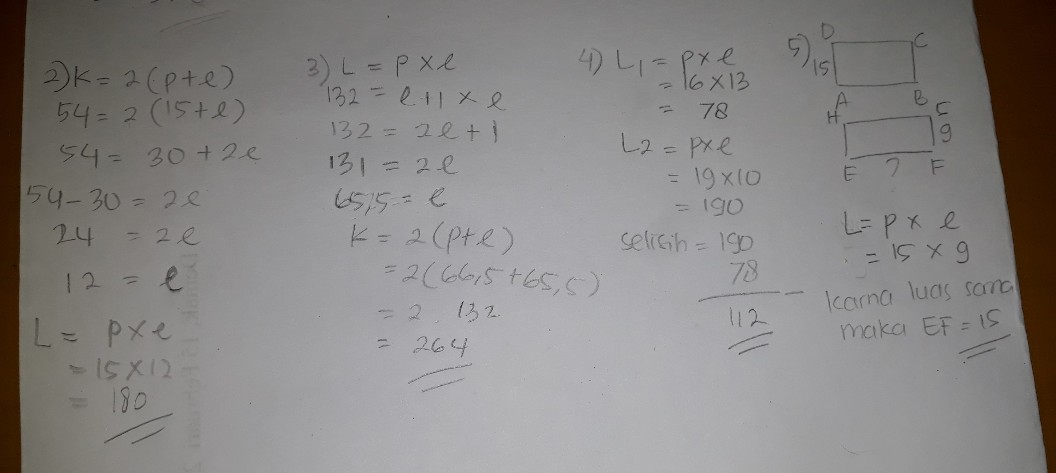 2) K = 2 (p + l)
54 = 2 (15 + l)
54 = 30 + 2l
54 - 30 = 2l
24 = 2l
12 = l
L = p x l
= 15 x 12
= 180
3) L = p x l
132 = l + 1 x l
132 = 2l + 1
131 = 2l
65,5 = l
K = 2 (p + l)
= 2 (66,5 + 65,5)
= 2 . 132
= 264
4) L1 = p x l
= 16 x 13
= 78
L2 = p x l
= 19 x 10
= 190
selisih = 190
78
112
5)
D C
15
A B
H G
9
E ? F
L = p x l
= 15 x 9
karna luas sama
maka EF = 15